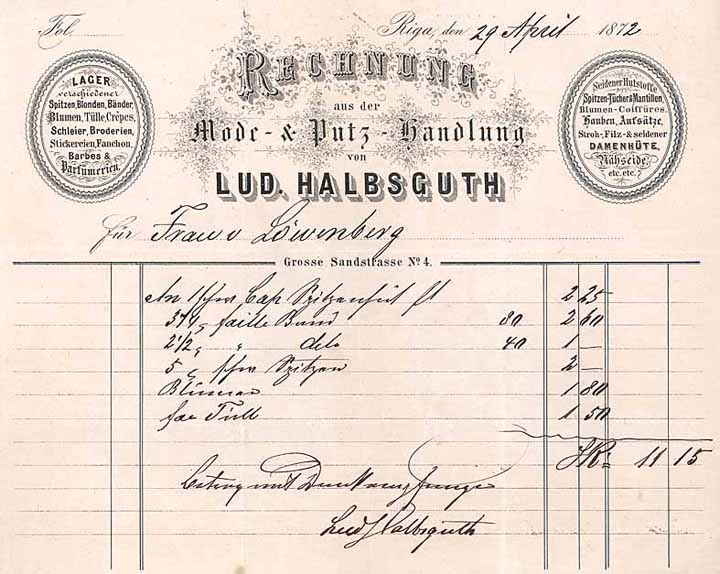 Fol.
Riga, den 29 April 1872
LAGER
verschiedener
Spitzen, Blonden, Bänder,
Blumen, Tülle, Crêpes,
Schleier, Broderien,
Stickereien, Fanchon,
Barbes &
Parfumerien.
RECHNUNG
aus der
Mode- & Putz-Handlung
von
LUD. HALBSGUTH
Seidener Hutstoffe
Spitzen-Tücher & Mantillen,
Blumen-Coiffüres,
Hauben, Aufsätze,
Stroh-, Filz- & seidener
DAMENHÜTE,
Nähseide,
etc. etc.
für Frau v Löwenberg
Grosse Sandstrasse No 4.
An 1 schw Cap Spitzenhut 2 25
3 1/4 " faille Band 80 2 60
2 1/2 " " dito 40 1 —
5 " schw Spitzen 2 —
Blumen 1 80
Tüll 1 50
SR: 11 15
Betrag mit Dank empfangen
Lud Halbsguth